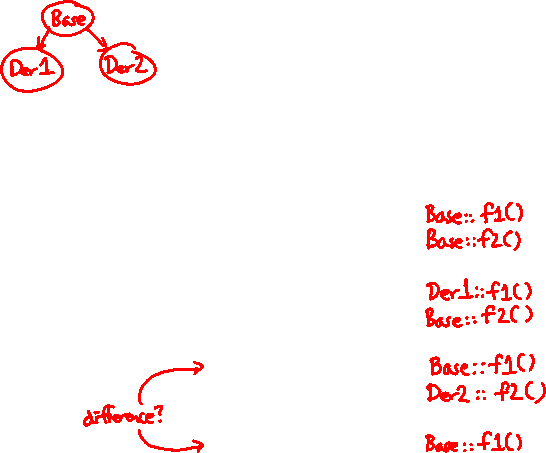 Base
Der1 Der2
Base::f1()
Base::f2()
Der1::f1()
Base::f2()
Base::f1()
Der2::f2()
difference?
Base::f1()